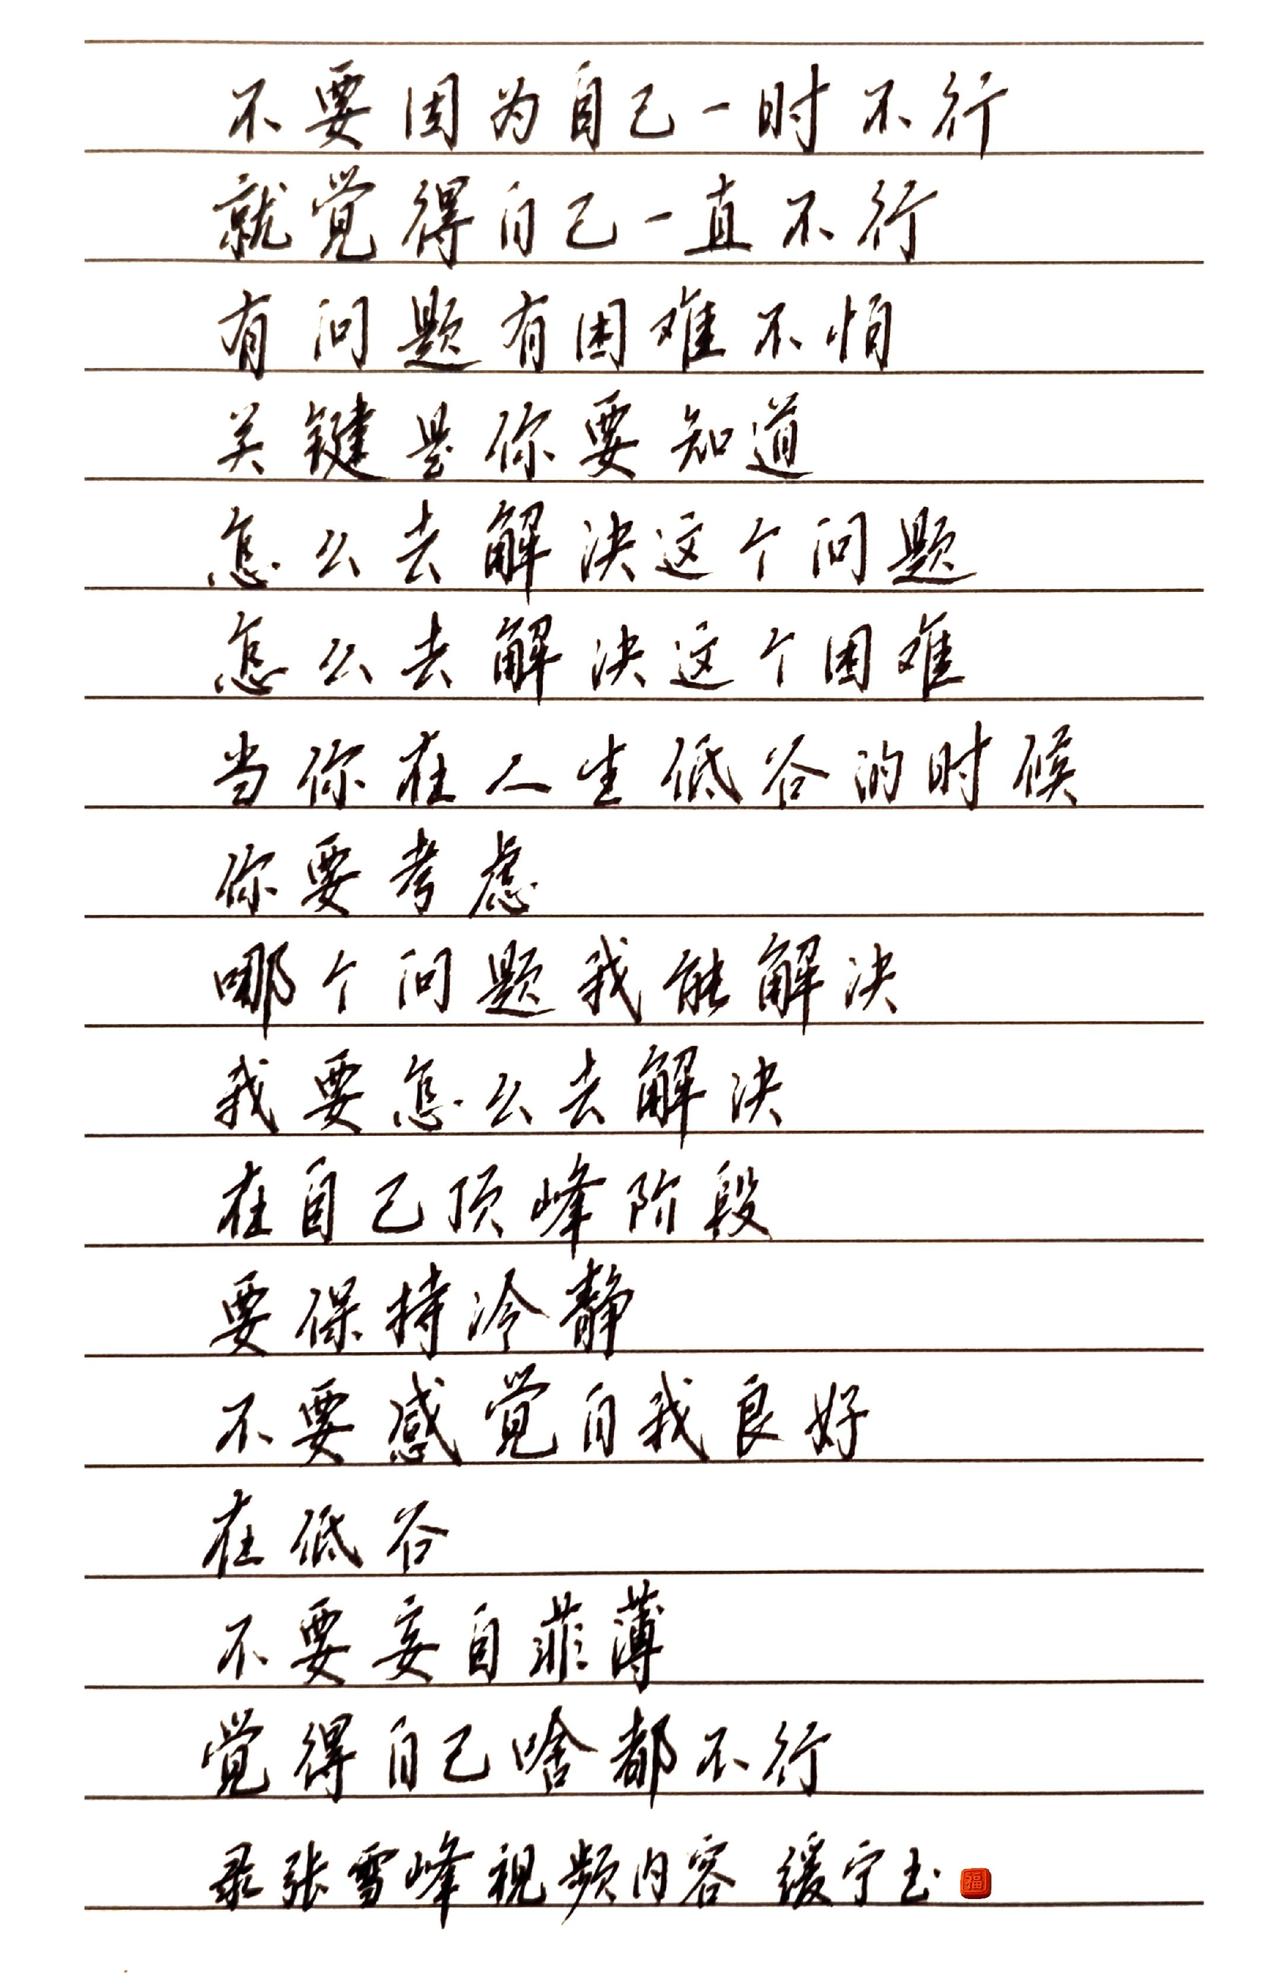 不要因为自己一时不行
就觉得自己一直不行
有问题有困难不怕
关键是你要知道
怎么去解决这个问题
怎么去解决这个困难
当你在人生低谷的时候
你要考虑
哪个问题我能解决
我要怎么去解决
在自己顶峰阶段
要保持冷静
不要感觉自我良好
在低谷
不要妄自菲薄
觉得自己啥都不行
录张雪峰视频内容 缓宁书
福